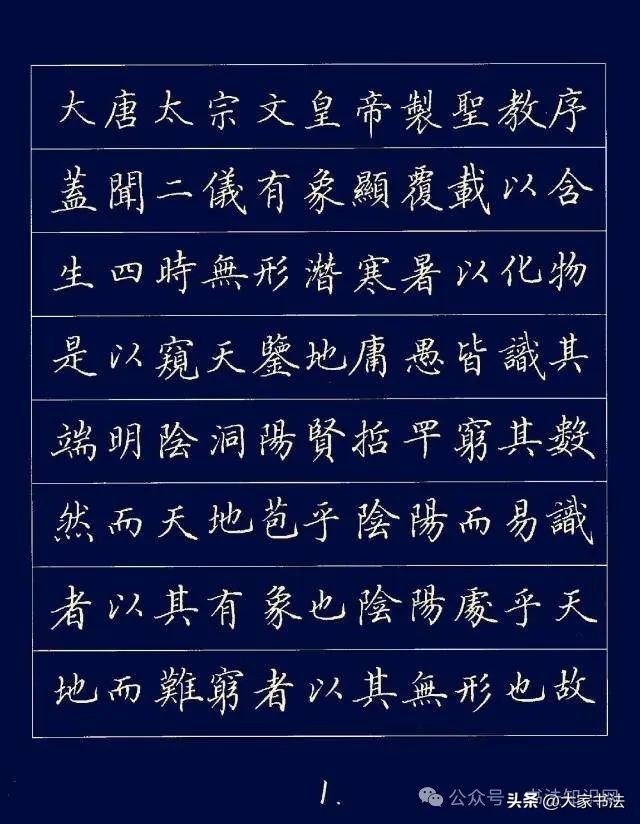 大唐太宗文皇帝製聖教序
蓋聞二儀有象顯覆載以含
生四時無形潛寒暑以化物
是以窺天鑒地庸愚皆識其
端明陰洞陽賢哲罕窮其數
然而天地苞乎陰陽而易識
者以其有象也陰陽處乎天
地而難窮者以其無形也故
1.
公众号·书法知识网
头条@大家书法